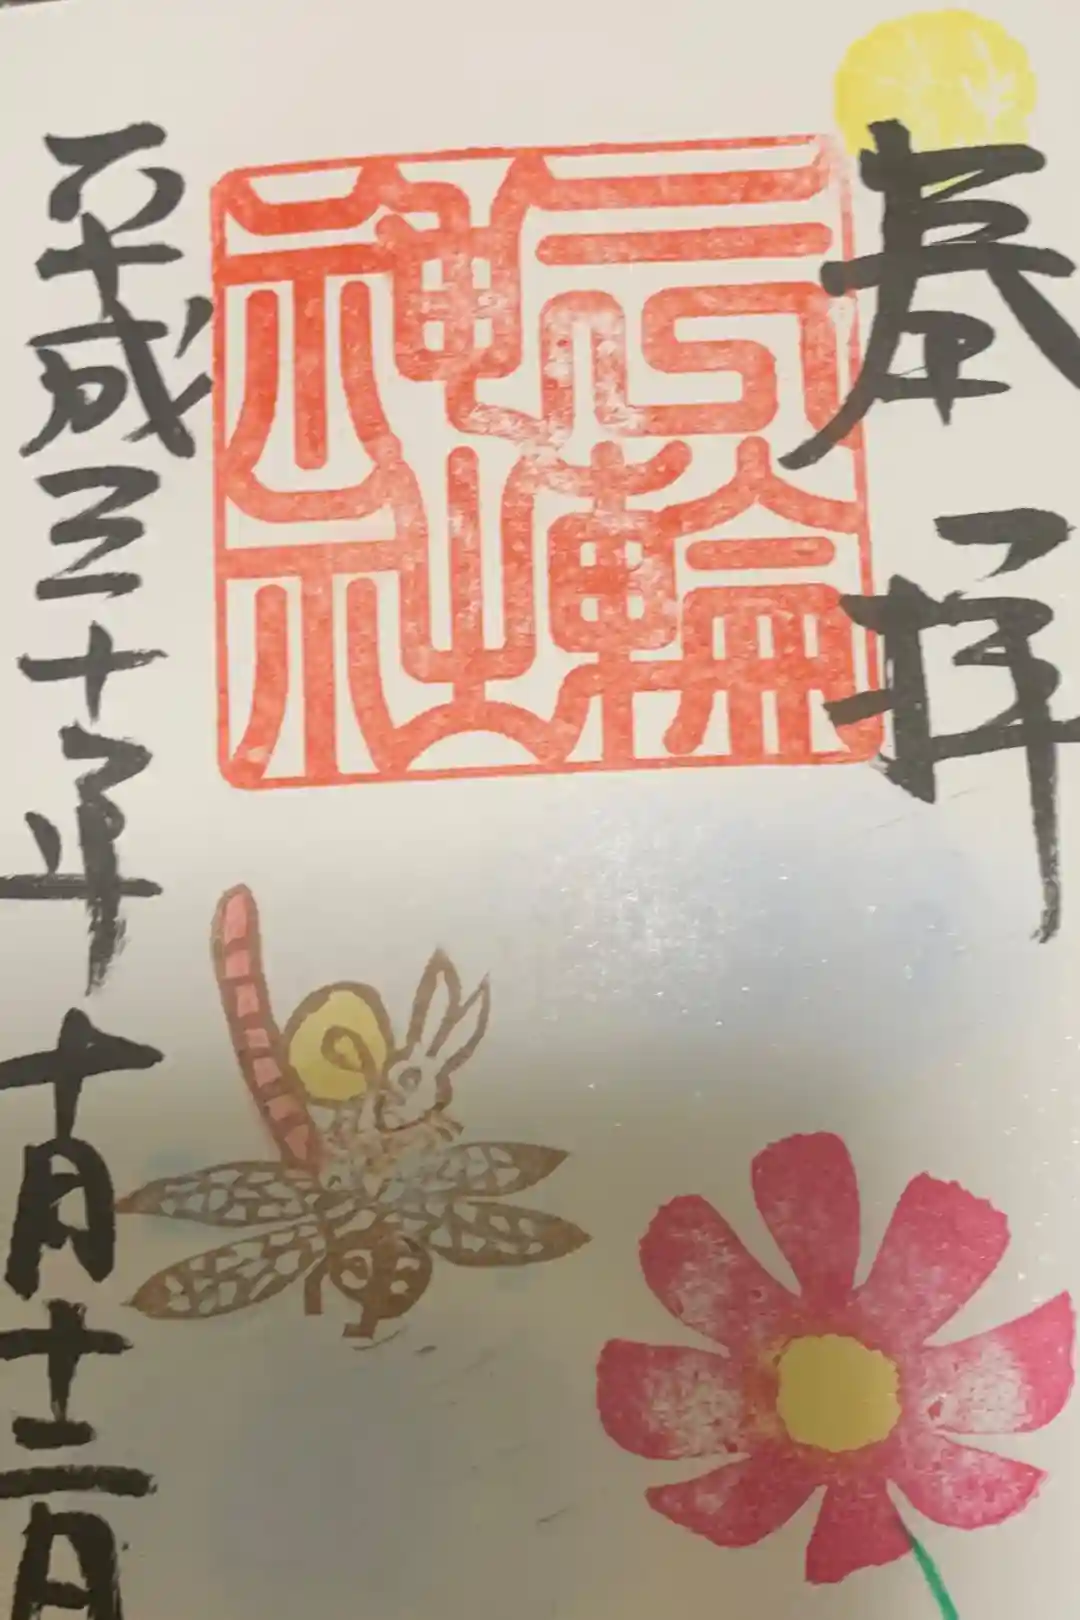 奉拝
三輪神社
平成三十年十月十二日